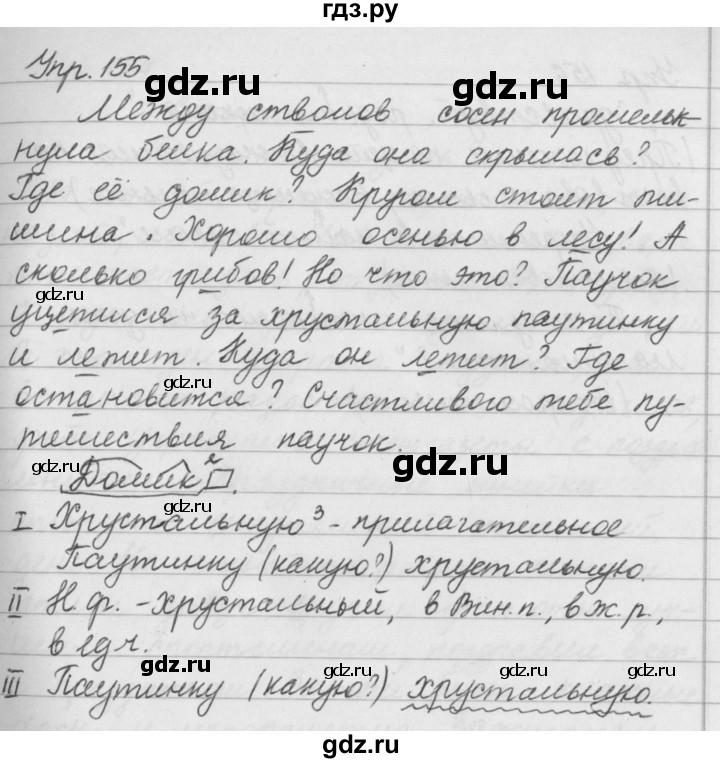 гдз.ру
Упр. 155
gdz.ru
gdz.ru
Между стволов сосен промельк-
нула белка. Куда она скрылась?
gdz.ru
gdz.ru
Где её домик? Кругом стоит ти-
шина. Хорошо осенью в лесу! А
сколько грибов! Но что это? Паучок
gdz.ru
gdz.ru
уцепился за хрустальную паутинку
и летит. Куда он летит? Где
gdz.ru
gdz.ru
остановится? Счастливого тебе пу-
тешествия паучок.
gdz.ru
gdz.ru
gdz.ru
Домик²
I Хрустальную³ - прилагательное
Паутинку (какую?) хрустальную.
II Н.ф. - хрустальный, в Вин.п., в ж.р.,
в ед.ч.
gdz.ru
gdz.ru
gdz.ru
III Паутинку (какую?) хрустальную.
gdz.ru